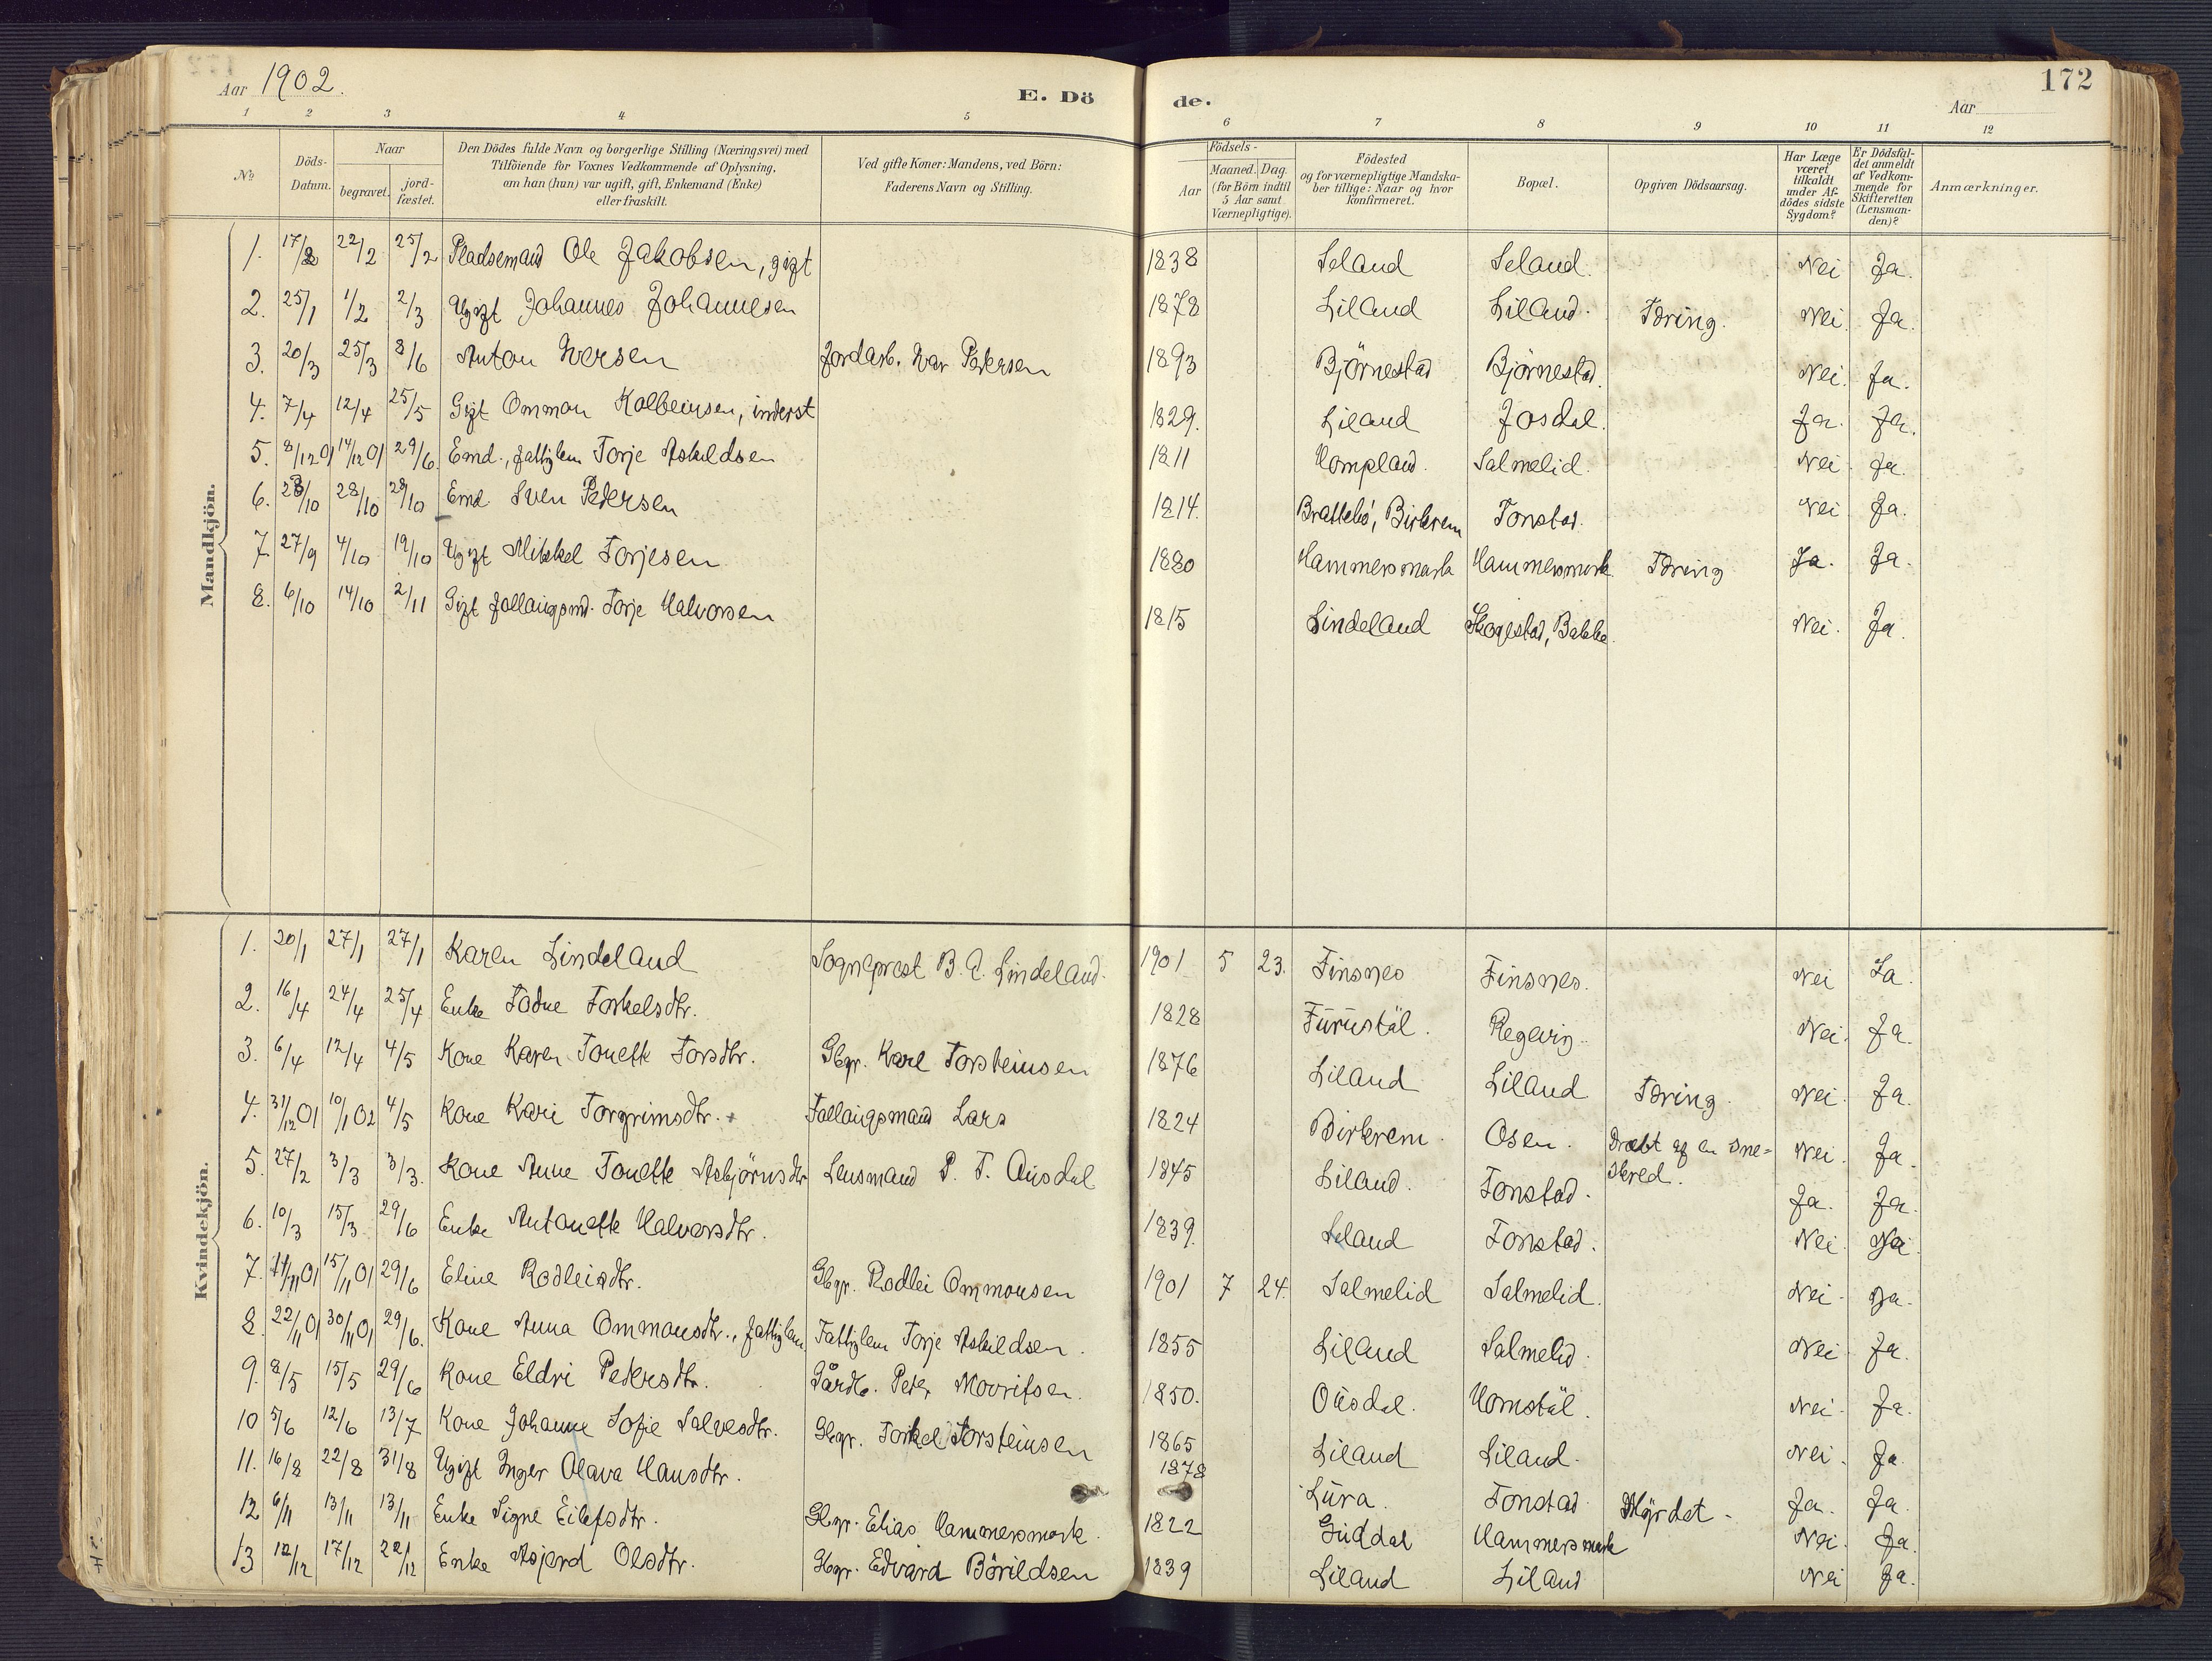 Aar 1902.
E. Dö
de.
172
Aar
1 2 3 4 5 6 7 8 9 10 11 12
№
Döds-Datum.
Naar
begravet.
jord-fæstet.
Den Dödes fulde Navn og borgerlige Stilling (Næringsvei) med
Tilföiende for Voxnes Vedkommende af Oplysning,
om han (hun) var ugift, gift, Enkemand (Enke)
eller fraskilt.
Ved gifte Koner: Mandens, ved Börn:
Faderens Navn og Stilling.
Födsels-
Aar
Maaned. Dag.
(for Börn indtil
5 Aar samt
Værnepligtige).
Födested
og for værnepligtige Mandska-
ber tillige: Naar og hvor
konfirmeret.
Bopæl.
Opgiven Dödsaarsag.
Har Læge
været
tilkaldt
under Af-
dödes sidste
Sygdom?
Er Dödsfal-
det anmeldt
af Vedkom-
mende for
Skifteretten
(Lensman-
den)?
Anmærkninger.
Mandkjön.
1. 17/2 22/2 25/2 Pladsemand Ole Jakobsen, gift 1838 Seland Seland. Nei Ja.
2. 25/1 1/2 2/3 Ugift Johannes Johannesen 1878 Liland Liland. Tæring. Nei. Ja.
3. 20/3 25/3 8/6 Anton Iversen Jordarb. Ivar Pedersen 1893 Björnestad Björnestad. Nei. Ja.
4. 7/4 12/4 25/5 Gift Ommon Kolbeinsen, inderst 1829. Liland Josdal. Ja. Ja.
5. 8/12 01 14/12 01 29/6. Emd., fattiglem Torje Askildsen 1811 Hompland. Salmelid. Nei Ja.
6. 23/10 28/10 28/10 Emd. Sven Pedersen 1814. Brattebö, Birkrem Tonstad. Nei Ja.
7. 27/9 4/10 19/10 Ugift Mikkel Torjesen 1880 Hammersmark Hammersmark Tæring Ja. Ja.
8. 6/10 14/10 2/11 Gift follaugsmd. Torje Halvorsen 1815 Lindeland Skogestad, Bakke. Nei. Ja.
Kvindekjön.
1. 20/1 27/1 27/1 Karen Lindeland Sogneprest B. A. Lindeland. 1901 5 23. Finsnes Finsnes. Nei Ja.
2. 16/4 24/4 25/4 Enke Todne Torkelsdtr. 1828 Furustöl. Regevig. Nei. Ja.
3. 6/4 12/4 4/5 Kone Karen Tonette Torsdtr. Gbgr. Karl Torsteinsen 1876 Liland Liland Tæring. Nei. Ja.
4. 31/12 01 10/1 02 4/5 Kone Kari Torgrimsdtr. Follaugsmand Lars 1824 Birkrem. Osen. Dræbt af en sne-skred. Nei. Ja.
5. 27/2 3/3 3/3. Kone Anne Tonette Asbjörnsdtr Lensmand P. T. Ousdal 1845 Liland. Tonstad. Ja. Ja.
6. 10/3 15/3 29/6 Enke Antonette Halvorsdtr. 1839. Seland Tonstad. Nei. Ja.
7. 11/11 01 15/11 01 29/6 Eline Rodleisdtr. Gbgr. Rodlei Ommonsen 1901 7 24. Salmelid Salmelid. Nei. Ja.
8. 22/11 01 30/11 01 29/6. Kone Anna Ommonsdtr., fattiglem Fattiglem Torje Askildsen. 1855 Liland Salmelid. Nei. Ja.
9. 8/5 15/5 29/6 Kone Eldri Pedersdtr. Gårdb. Peder Mouritsen. 1850. Ousdal. Homstöl. Nei. Ja.
10 5/6 12/6 13/7 Kone Johanne Sofie Salvesdtr. Gbgr. Torkel Torsteinsen 1865 Liland Liland. Nei. Ja
11. 16/8 22/8 31/8 Ugift Inger Olava Hansdtr. 1878 Lura. Tonstad Myrdet. Ja. Ja.
12 6/11 13/11 13/11 Enke Signe Eilefsdtr. Gbgr. Elias Hammersmark. 1822 Guddal Hammersmark Nei. Ja.
13 12/12 17/12 22/12 Enke Asjerd Olsdtr. Gbgr. Edvard Börildsen 1839 Liland Liland Nei Ja.